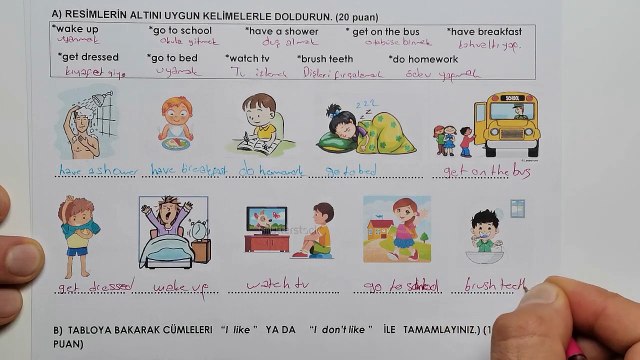 A) RESİMLERİN ALTINI UYGUN KELİMELERLE DOLDURUN. (20 puan)
*wake up *go to school *have a shower *get on the bus *have breakfast
uyanmak okula gitmek duş almak otobüse binmek kahvaltı yap.
*get dressed *go to bed *watch tv *brush teeth *do homework
kıyafet giy. uyumak Tv izlemek Dişleri fırçalamak ödev yapmak
SCHOOL
have a shower have breakfast do homework go to bed get on the bus
get dressed wake up watch tv go to school brush teeth
B) TABLOYA BAKARAK CÜMLELERİ “I like ” YA DA “I don't like ” İLE TAMAMLAYINIZ.) (1
PUAN)